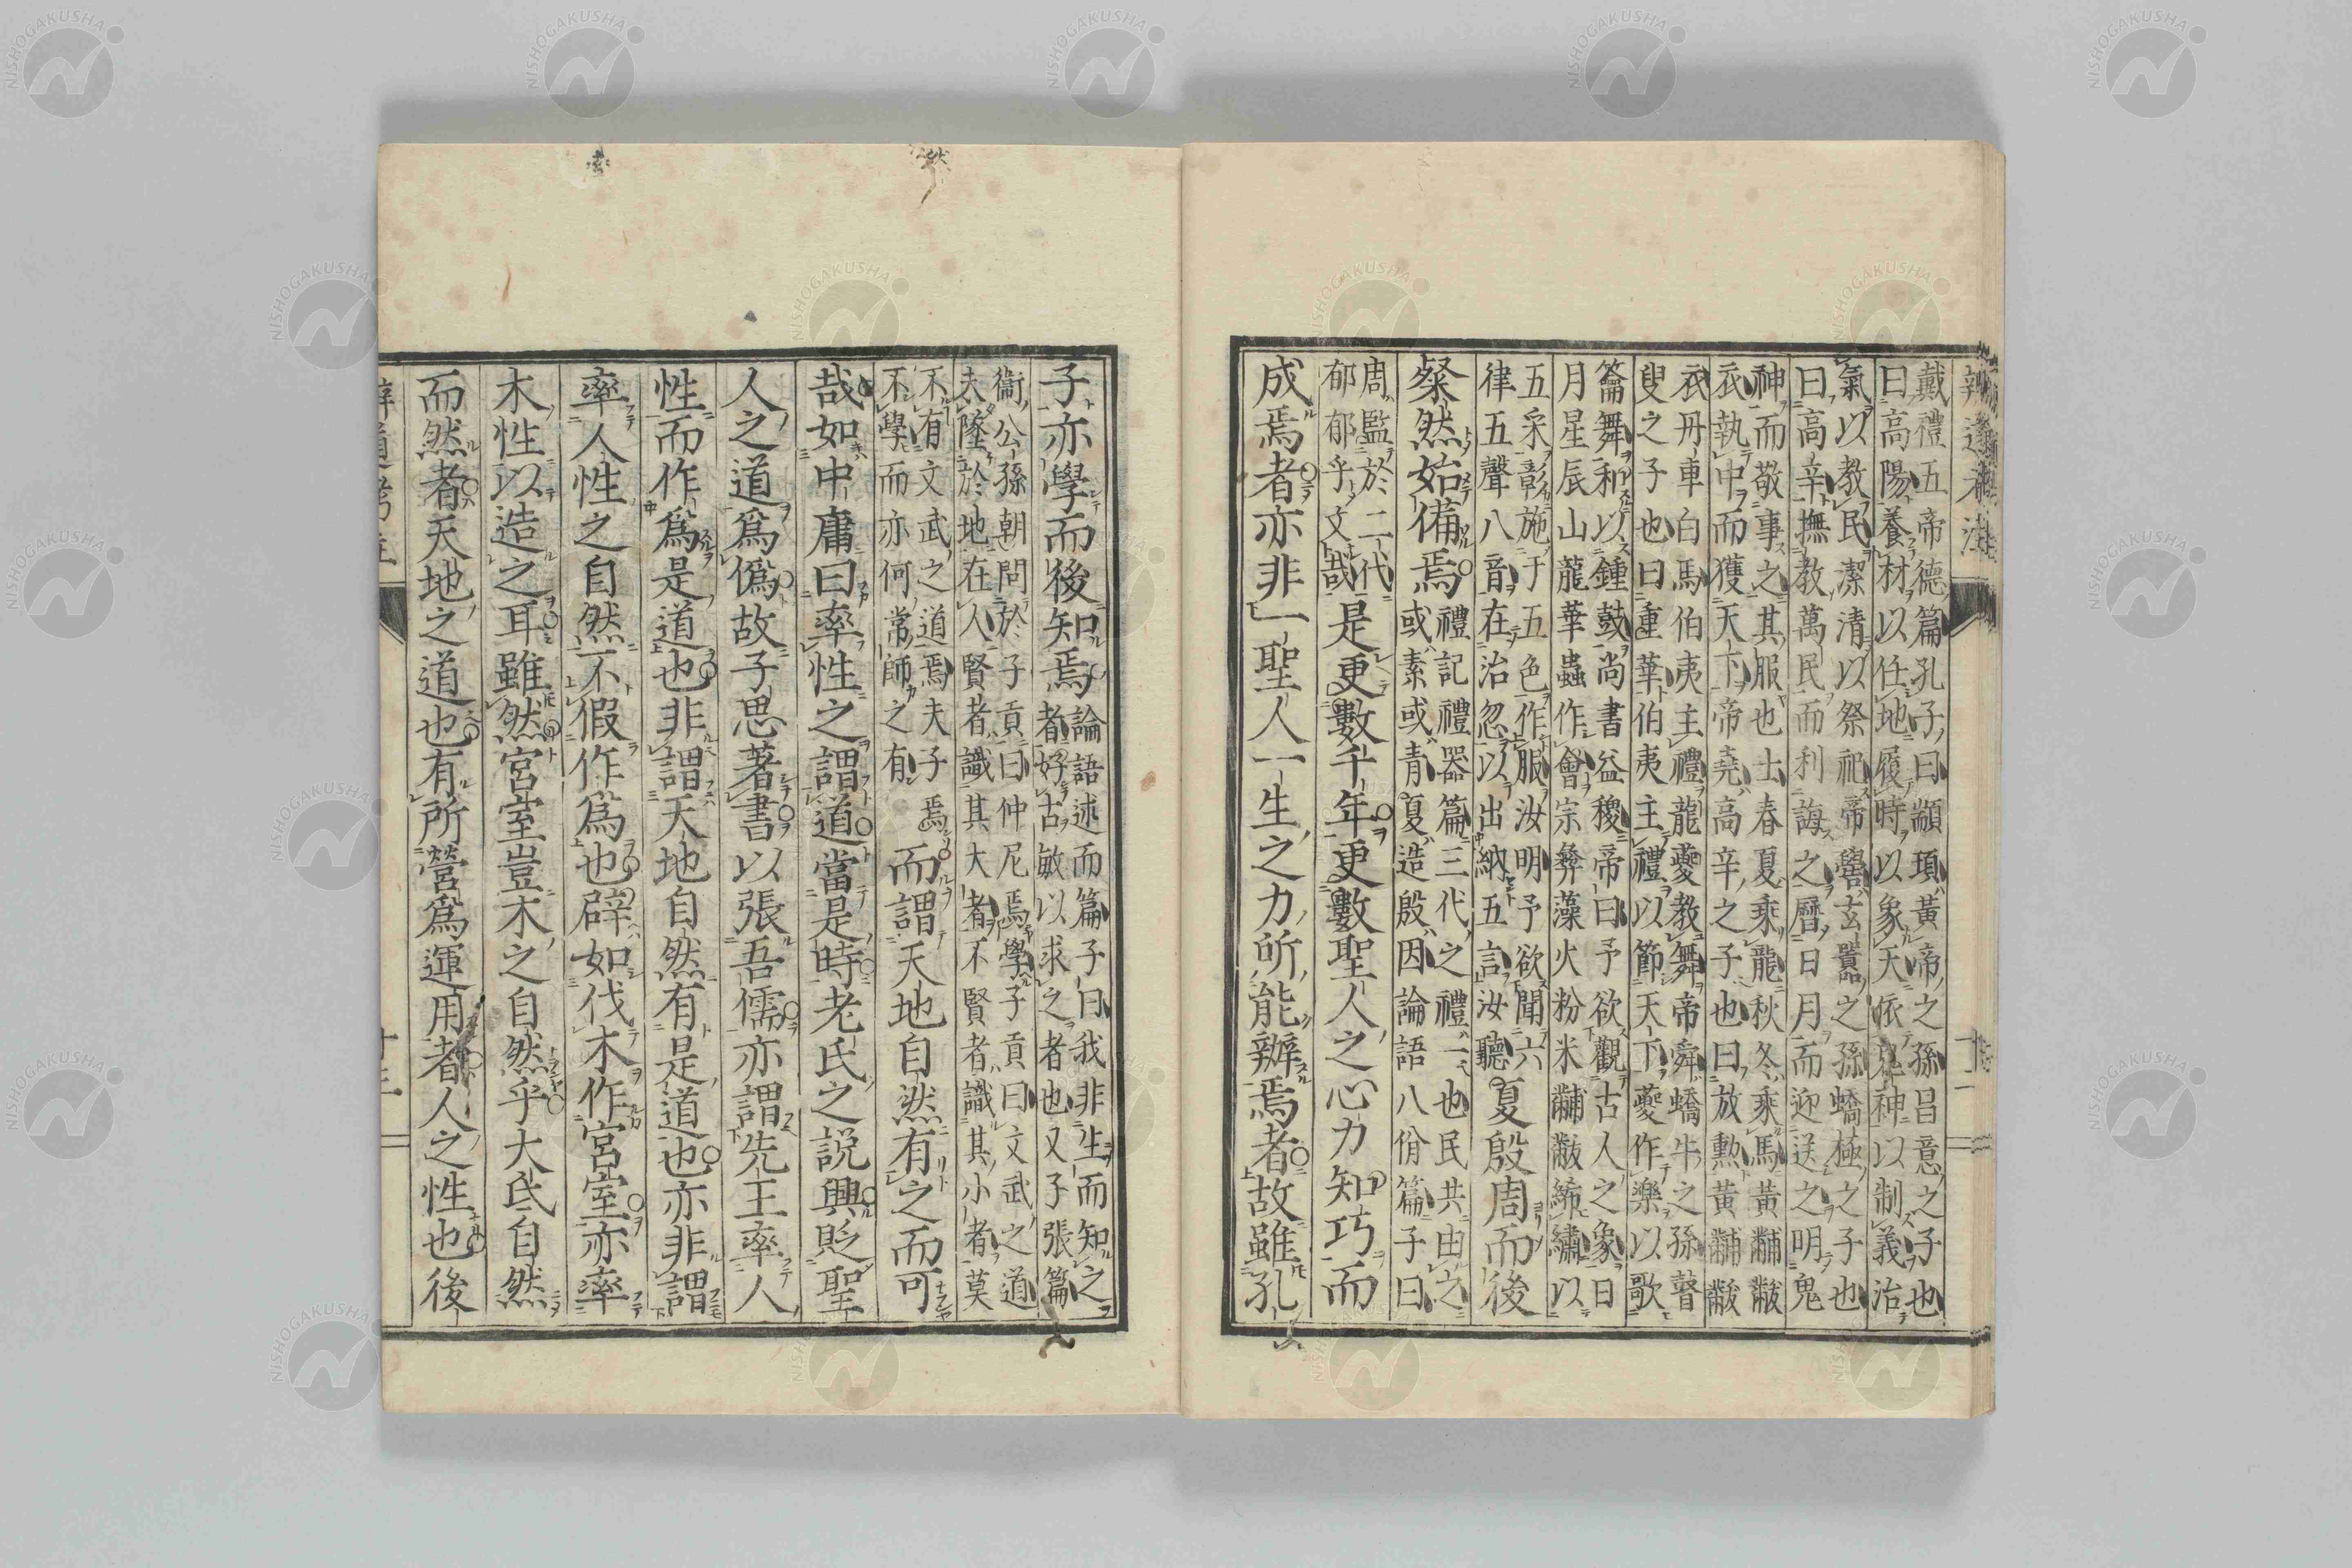 戴禮五帝德篇孔子曰顓頊黃帝之孫昌意之子也
曰高陽養材以任地履時以象天依鬼神以制義治
氣以教民潔清以祭祀帝嚳玄囂之孫蟜極之子也
曰高辛撫教萬民而利誨之曆日月而迎送之明鬼
神而敬事之其服也士春夏乘龍秋冬乘馬黃黼黻
衣執中而獲天下帝堯高辛之子也曰放勲黃黼黻
衣丹車白馬伯夷主禮龍夔教舞帝舜蟜牛之孫瞽
叟之子也曰重華伯夷主禮以節天下夔作樂以歌
籥舞和以鍾鼓尚書益稷帝曰予欲觀古人之象日
月星辰山龍華蟲作會宗彝藻火粉米黼黻絺繡以
五采彰施于五色作服汝明予欲聞六
律五聲八音在治忽以出納五言汝聽夏殷周而後
粲然始備焉禮記禮器篇三代之禮一也民共由之
或素或青夏造殷因論語八佾篇子曰
周監於二代
郁郁乎文哉是更數千年更數聖人之心力知巧而
成焉者亦非一聖人一生之力所能辦焉者故雖孔
子亦學而後知焉論語述而篇子曰我非生而知之
者好古敏以求之者也又子張篇
衞公孫朝問於子貢曰仲尼焉學子貢曰文武之道
未墜於地在人賢者識其大者不賢者識其小者莫
不有文武之道焉夫子焉
不學而亦何常師之有而謂天地自然有之而可
哉如中庸曰率性之謂道當是時老氏之説興貶聖
人之道爲僞故子思著書以張吾儒亦謂先王率人
性而作爲是道也非謂天地自然有是道也亦非謂
率人性之自然不假作爲也辟如伐木作宮室亦率
木性以造之耳雖然宮室豈木之自然乎大氐自然
而然者天地之道也有所營爲運用者人之性也後
辨道考注
NISHOGAKUSHA